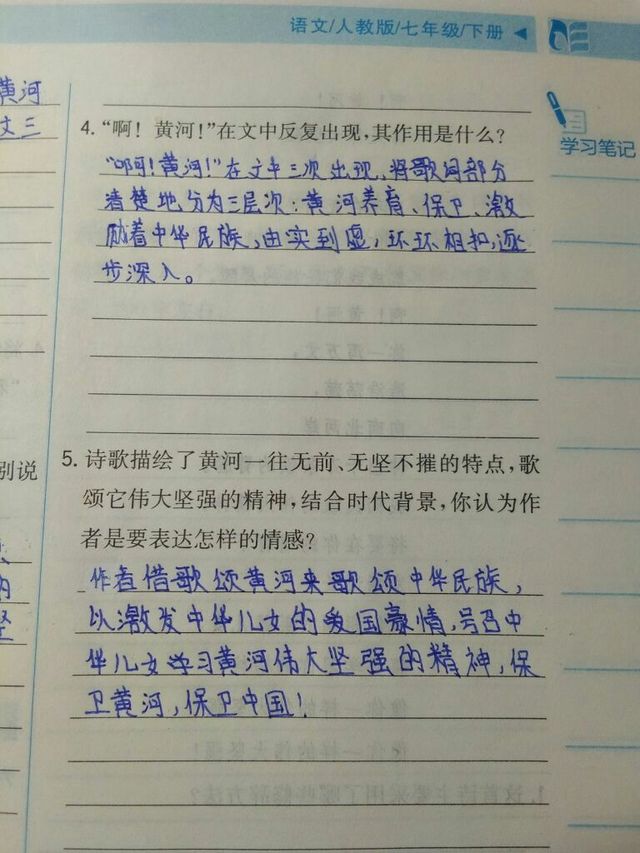 语文/人教版/七年级/下册
学习笔记
黄河
丈三
4.“啊！黄河！”在文中反复出现,其作用是什么?
“啊！黄河！”在文中三次出现，将歌词部分
清楚地分为三层次：黄河养育、保卫、激
励着中华民族，由实到愿，环环相扣，逐
步深入。
别说
5. 诗歌描绘了黄河一往无前、无坚不摧的特点,歌
颂它伟大坚强的精神,结合时代背景,你认为作
者是要表达怎样的情感?
作者借歌颂黄河来歌颂中华民族，
以激发中华儿女的爱国豪情，号召中
华儿女学习黄河伟大坚强的精神，保
卫黄河，保卫中国！